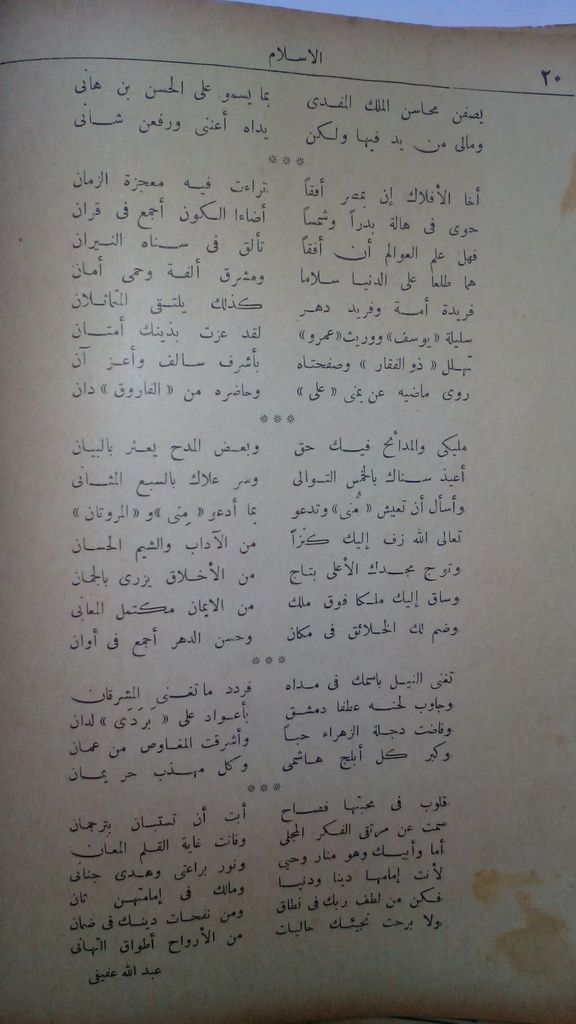 ٢٠
الاسلام
يصفن محاسن الملك المفدى بما يسمو على الحسن بن هانى
ومالى من يد فيها ولكن يداه أعننى ورفعن شانى
***
أخا الأفلاك إن بمصر أفقاً تراءت فيه معجزة الزمان
حوى فى هالة بدراً وشمساً أضاءا الكون أجمع فى قران
فهل علم العوالم أن أفقاً تألق فى سناه النيران
هما طلعا على الدنيا سلاما ومشرق ألفة وحمى أمان
فريدة أمة وفريد دهر كذلك يلتقى المتماثلان
سليلة «يوسف» ووريث «عمرو» لقد عزت بذينك أمتان
تهلل « ذو الفقار » وصفحتاه بأشرف سالف وأعز آن
روى ماضيه عن يمنى « على » وحاضره من « الفاروق » دان
***
مليكى والمدائح فيك حق وبعض المدح يعثر بالبيان
أعيذ سناك بالخمس التوالى وسر علاك بالسبع المثانى
وأسأل أن تعيش « مُنى» وتدعو بما أدعو « مِنى »و « المروتان »
تعالى الله زف إليك كنزاً من الآداب والشيم الحسان
وتوج مجدك الأعلى بتاج من الأخلاق يزرى بالجمان
وساق إليك ملكا فوق ملك من الايمان مكتمل المعانى
وضم لك الخلائق فى مكان وحسن الدهر أجمع فى أوان
***
تغنى النيل باسمك فى مداه فردد ما تغنى المشرقان
وجاوب لحنه عطفا دمشق بأعواد على « بَرَدَى » لدان
وفاضت دجلة الزهراء حباً وأشرقت المغاوص من عمان
وكبر كل أبلج هاشمى وكل مهذب حر يمان
***
قلوب فى محبتها فصاح أبت أن تستبان بترجمان
سمت عن مرتقى الفكر المجلى وفاتت غاية القلم المعان
أما وأبيك وهو منار وحيى ونور براعتى وهدى جنانى
لأنت إمامها دينا ودنيا ومالك فى إمامتهن ثان
فكن من لطف ربك فى نطاق ومن نفحات دينك فى ضمان
ولا برحت تجيئك حاليات من الأرواح أطواق التهانى
عبد الله عفيفى